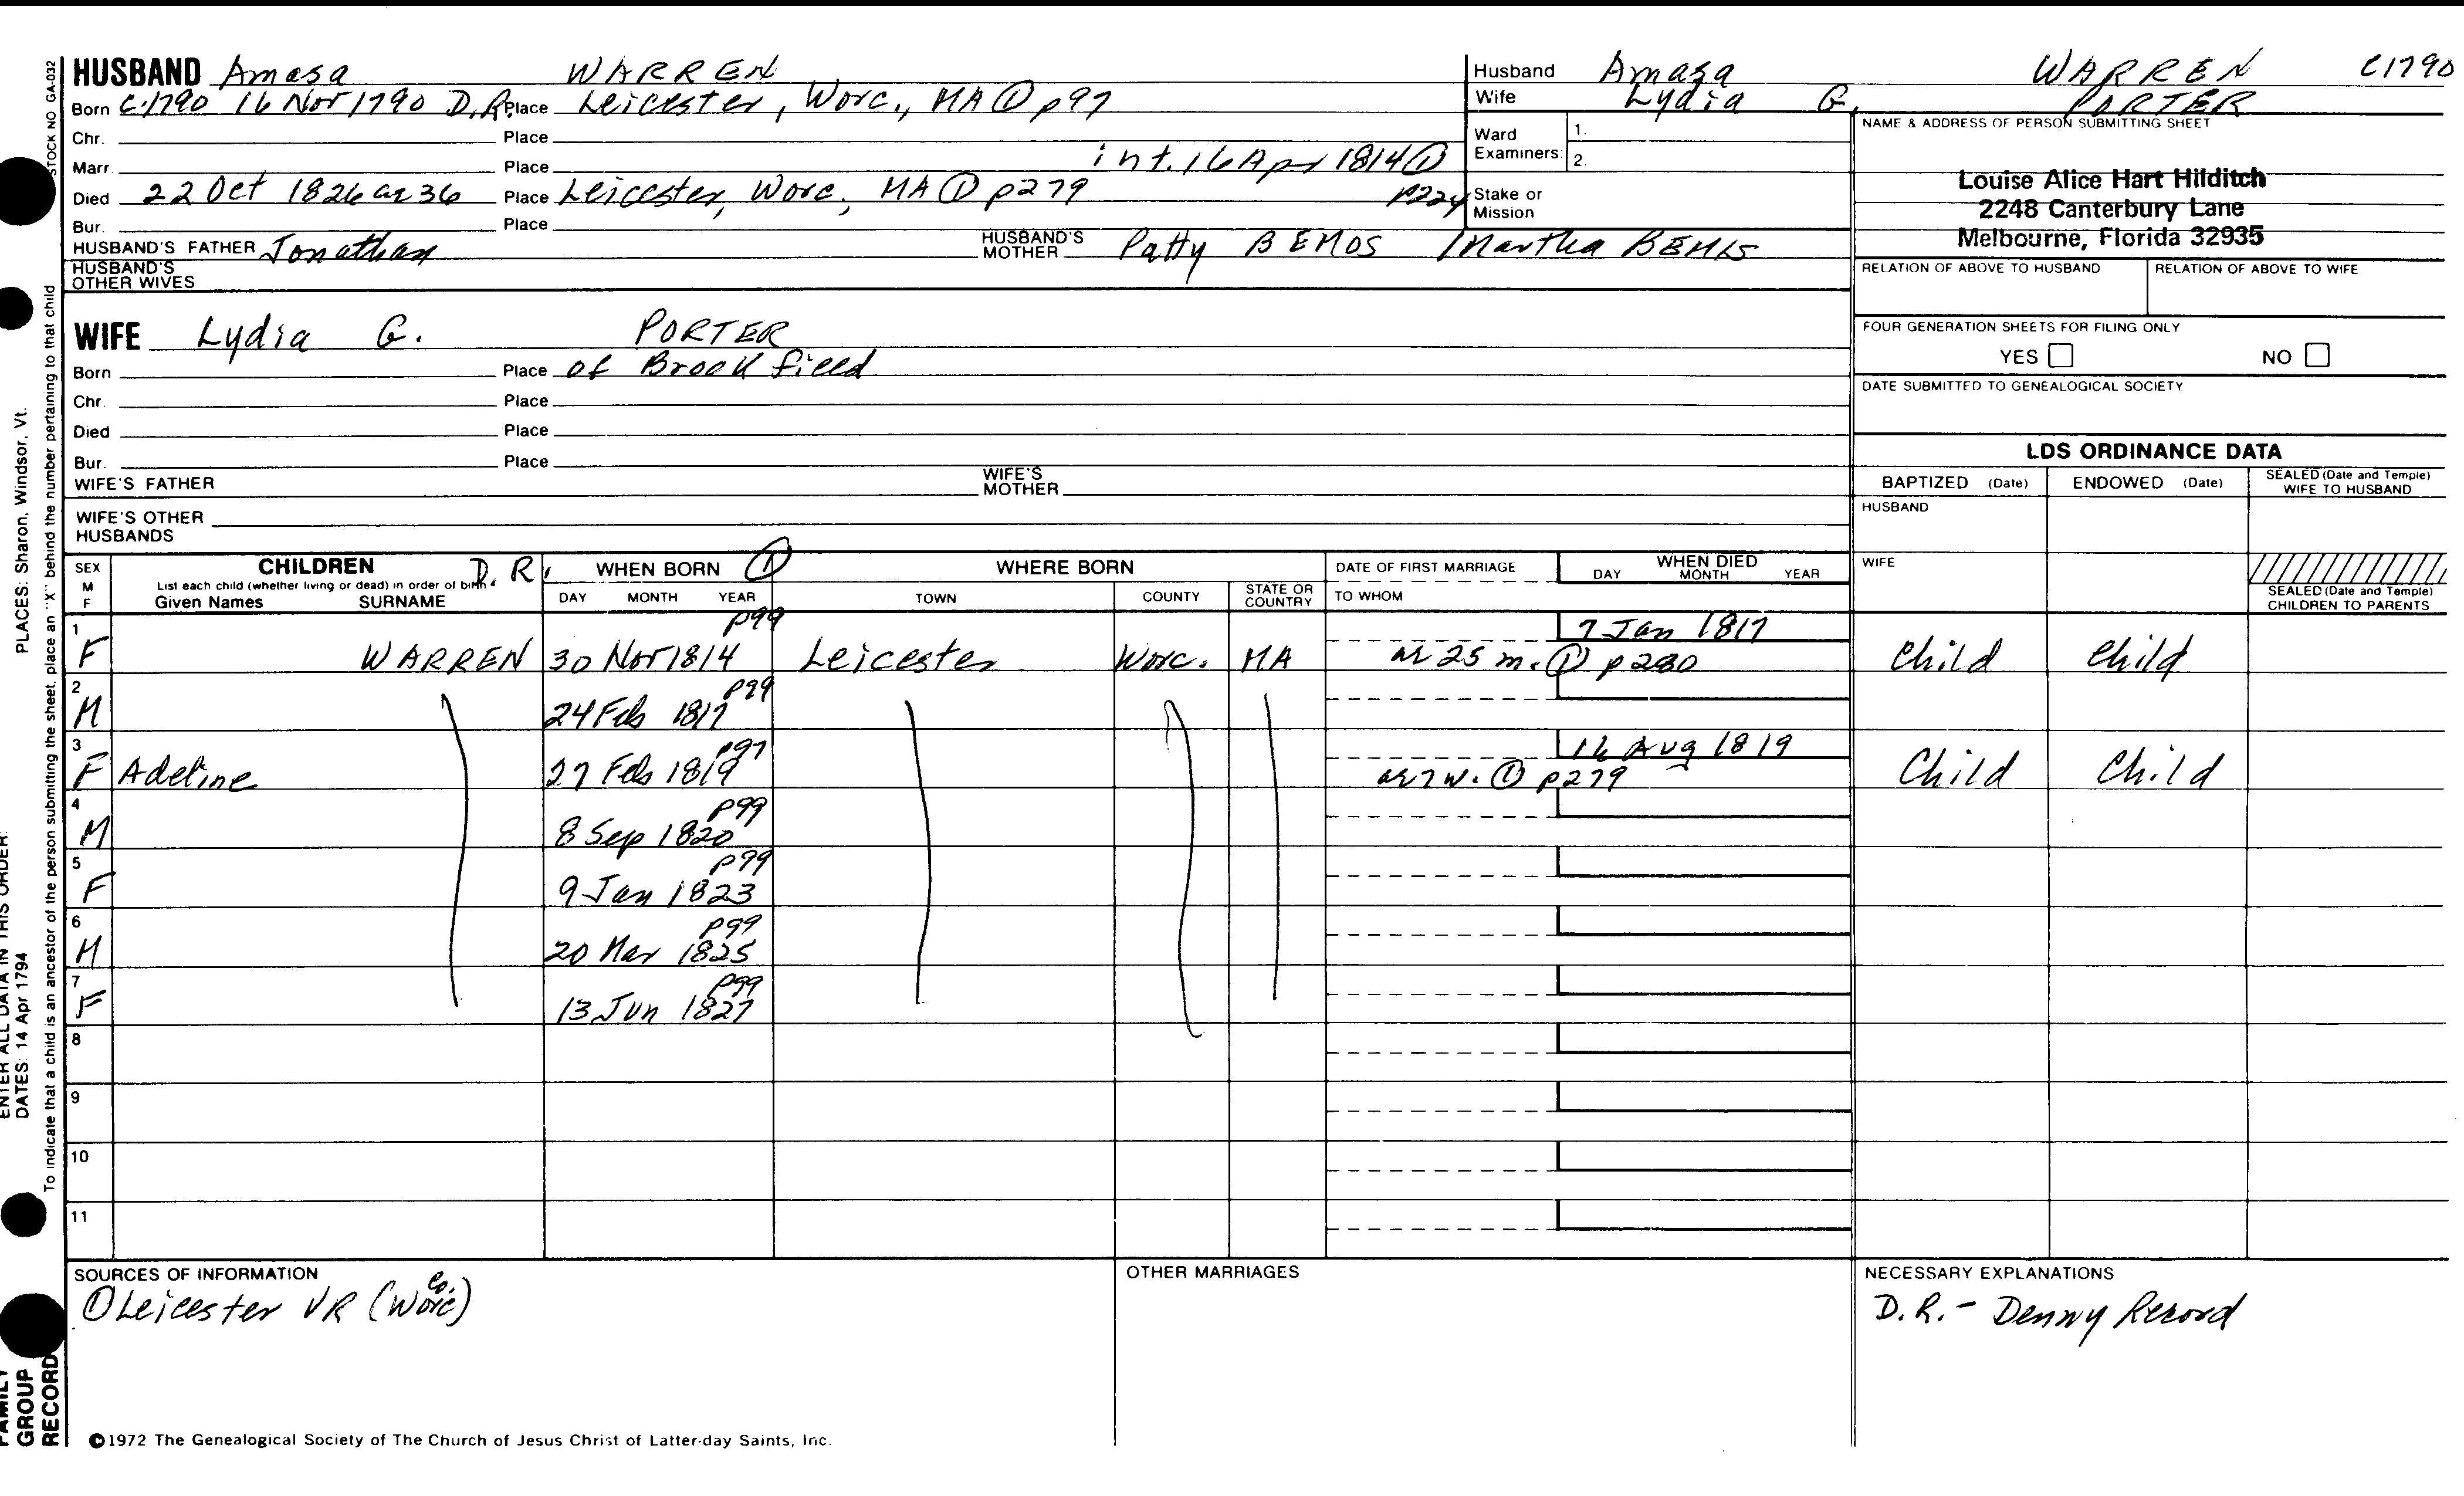 HUSBAND Amasa WARREN
Born C.1790 16 Nov 1790 D.R. Place Leicester, Worc., MA ① p97
Chr. Place
Marr. Place int. 16 Apr 1814 ① p224
Died 22 Oct 1826 ae 36 Place Leicester, Worc., MA ① p279
Bur. Place
HUSBAND'S FATHER Jonathan HUSBAND'S MOTHER Patty BEMOS Martha BEMIS
HUSBAND'S OTHER WIVES
WIFE Lydia G. PORTER
Born Place of Brookfield
Chr. Place
Died Place
Bur. Place
WIFE'S FATHER WIFE'S MOTHER
WIFE'S OTHER HUSBANDS
Husband Amasa WARREN C1790
Wife Lydia G. PORTER
Ward Examiners: 1.
2.
Stake or Mission
NAME & ADDRESS OF PERSON SUBMITTING SHEET
Louise Alice Hart Hilditch
2248 Canterbury Lane
Melbourne, Florida 32935
RELATION OF ABOVE TO HUSBAND RELATION OF ABOVE TO WIFE
FOUR GENERATION SHEETS FOR FILING ONLY
YES NO
DATE SUBMITTED TO GENEALOGICAL SOCIETY
LDS ORDINANCE DATA
BAPTIZED (Date) ENDOWED (Date) SEALED (Date and Temple) WIFE TO HUSBAND
HUSBAND
WIFE
SEALED (Date and Temple) CHILDREN TO PARENTS
SEX M F
CHILDREN D.R.
List each child (whether living or dead) in order of birth.
Given Names SURNAME
WHEN BORN ①
DAY MONTH YEAR
WHERE BORN
TOWN COUNTY STATE OR COUNTRY
DATE OF FIRST MARRIAGE
TO WHOM
WHEN DIED
DAY MONTH YEAR
1 F WARREN 30 Nov 1814 p99 Leicester Worc. MA 7 Jan 1817 ae 25 m. ① p280 Child Child
2 M 24 Feb 1817 p99
3 F Adeline 27 Feb 1819 p97 16 Aug 1819 ae 7 w. ① p279 Child Child
4 M 8 Sep 1820 p99
5 F 9 Jan 1823 p99
6 M 20 Mar 1825 p99
7 F 13 Jun 1827 p99
8
9
10
11
SOURCES OF INFORMATION
① Leicester VR (Worc Co.)
OTHER MARRIAGES
NECESSARY EXPLANATIONS
D.R. - Denny Record
©1972 The Genealogical Society of The Church of Jesus Christ of Latter-day Saints, Inc.
STOCK NO. GA-032
To indicate that a child is an ancestor of the person submitting the sheet, place an "X" behind the number pertaining to that child
PLACES: Sharon, Windsor, Vt.
ENTER ALL DATA IN THIS ORDER:
DATES: 14 Apr 1794
FAMILY GROUP RECORD